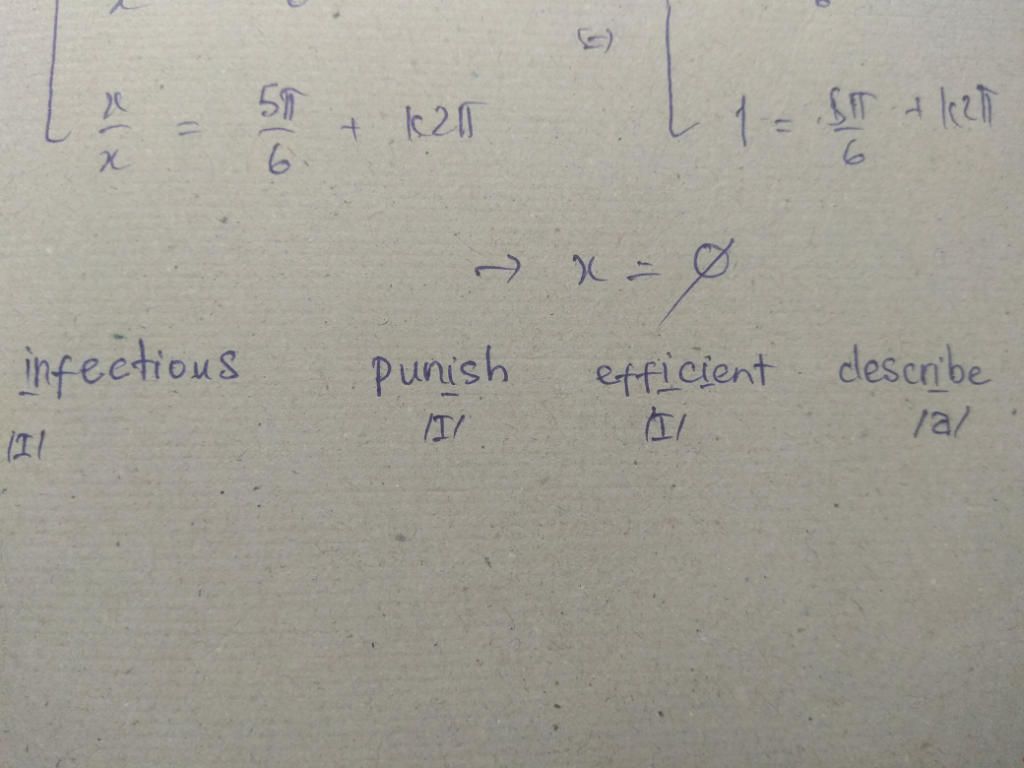 (=)
x/x = 5π/6 + k2π 1 = 5π/6 + k2π
→ x = ∅
infectious punish efficient describe
/I/ /I/ /I/ /a/